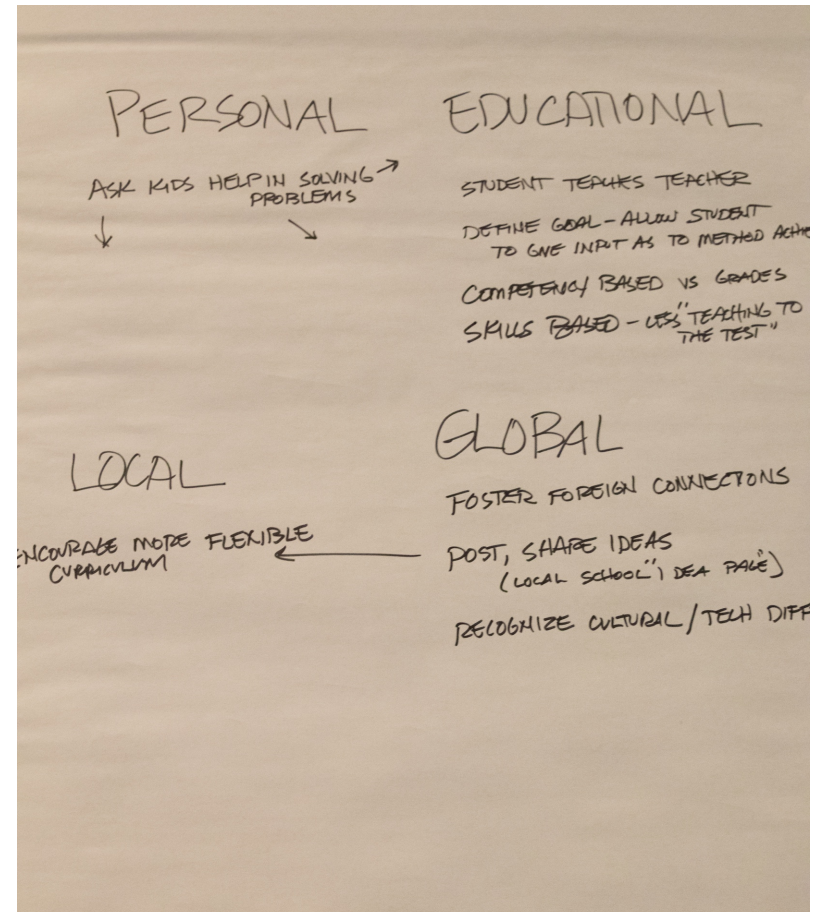 PERSONAL
ASK KIDS HELP IN SOLVING
PROBLEMS
EDUCATIONAL
STUDENT TEACHES TEACHER
DEFINE GOAL - ALLOW STUDENT
TO GIVE INPUT AS TO METHOD
COMPETENCY BASED VS GRADES
SKILLS BASED - LESS "TEACHING TO
THE TEST"
LOCAL
ENCOURAGE MORE FLEXIBLE
CURRICULUM
GLOBAL
FOSTER FOREIGN CONNECTIONS
POST, SHARE IDEAS
(LOCAL SCHOOL "IDEA PAGE")
RECOGNIZE CULTURAL/TECH DIFF